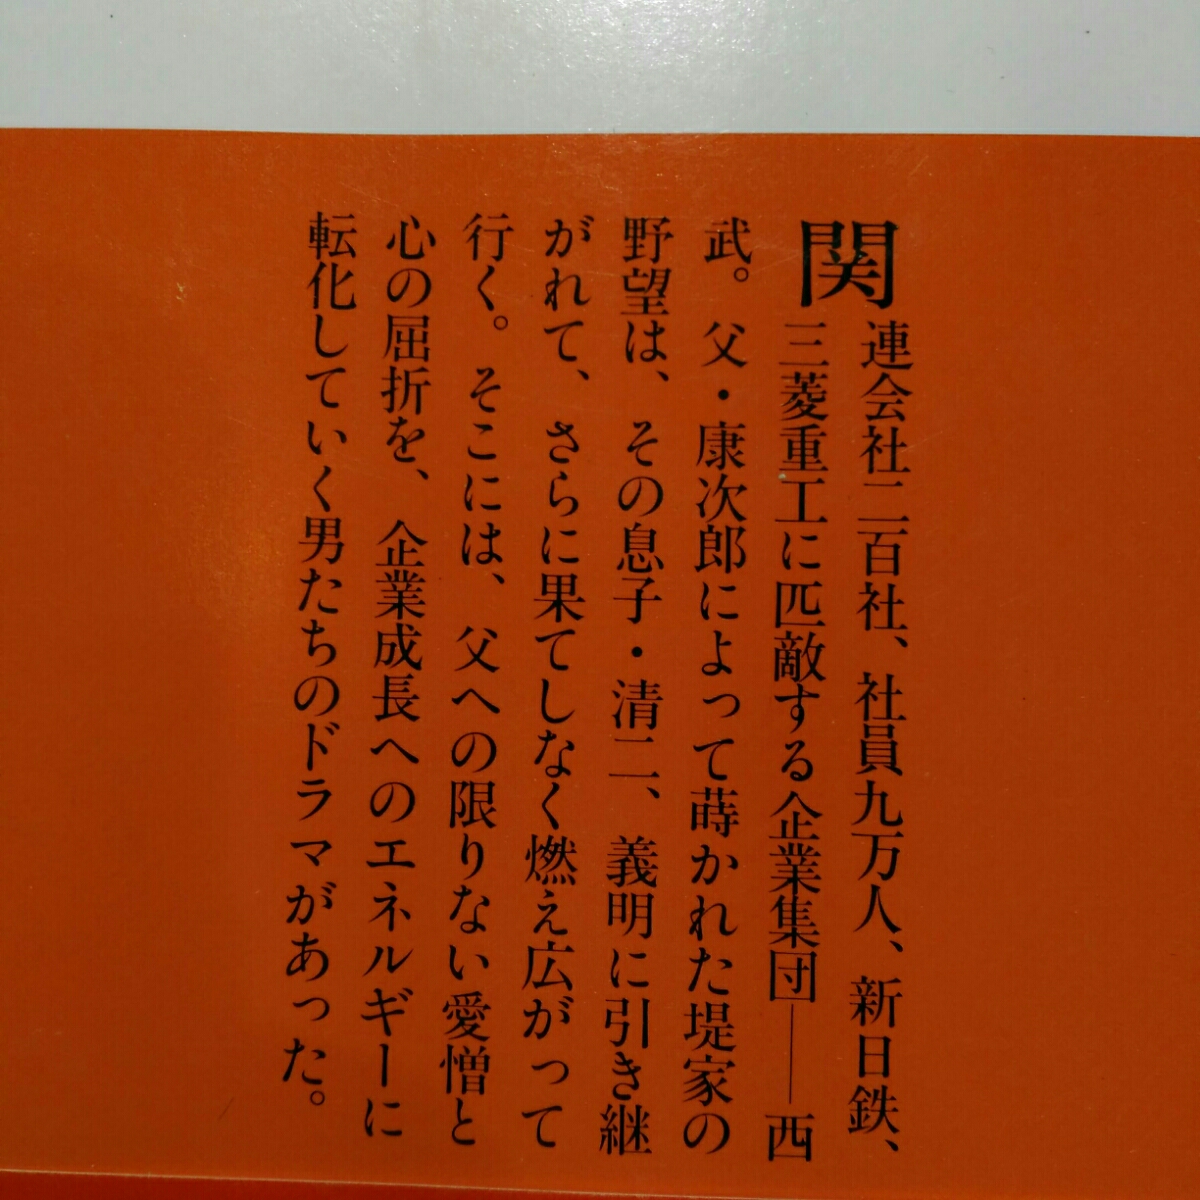 関連会社二百社、社員九万人、新日鉄、
三菱重工に匹敵する企業集団――西
武。父・康次郎によって蒔かれた堤家の
野望は、その息子・清二、義明に引き継
がれて、さらに果てしなく燃え広がって
行く。そこには、父への限りない愛憎と
心の屈折を、企業成長へのエネルギーに
転化していく男たちのドラマがあった。